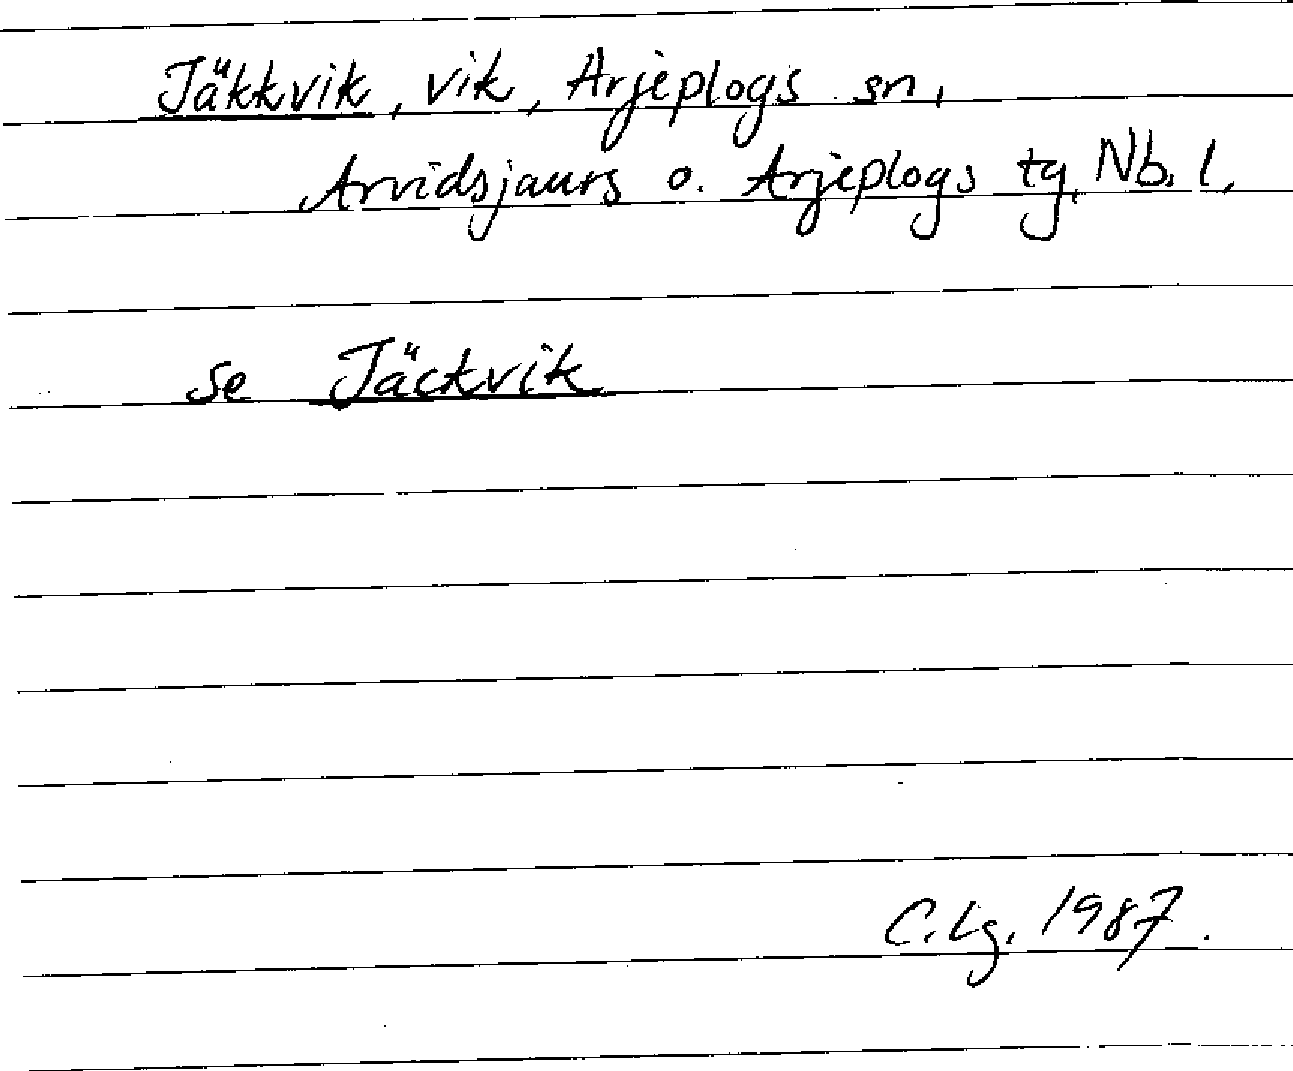 Jäkkvik, vik, Arjeplogs sn,
Arvidsjaurs o. Arjeplogs tg, Nb. l.
se Jäckvik
C. Lg. 1987.